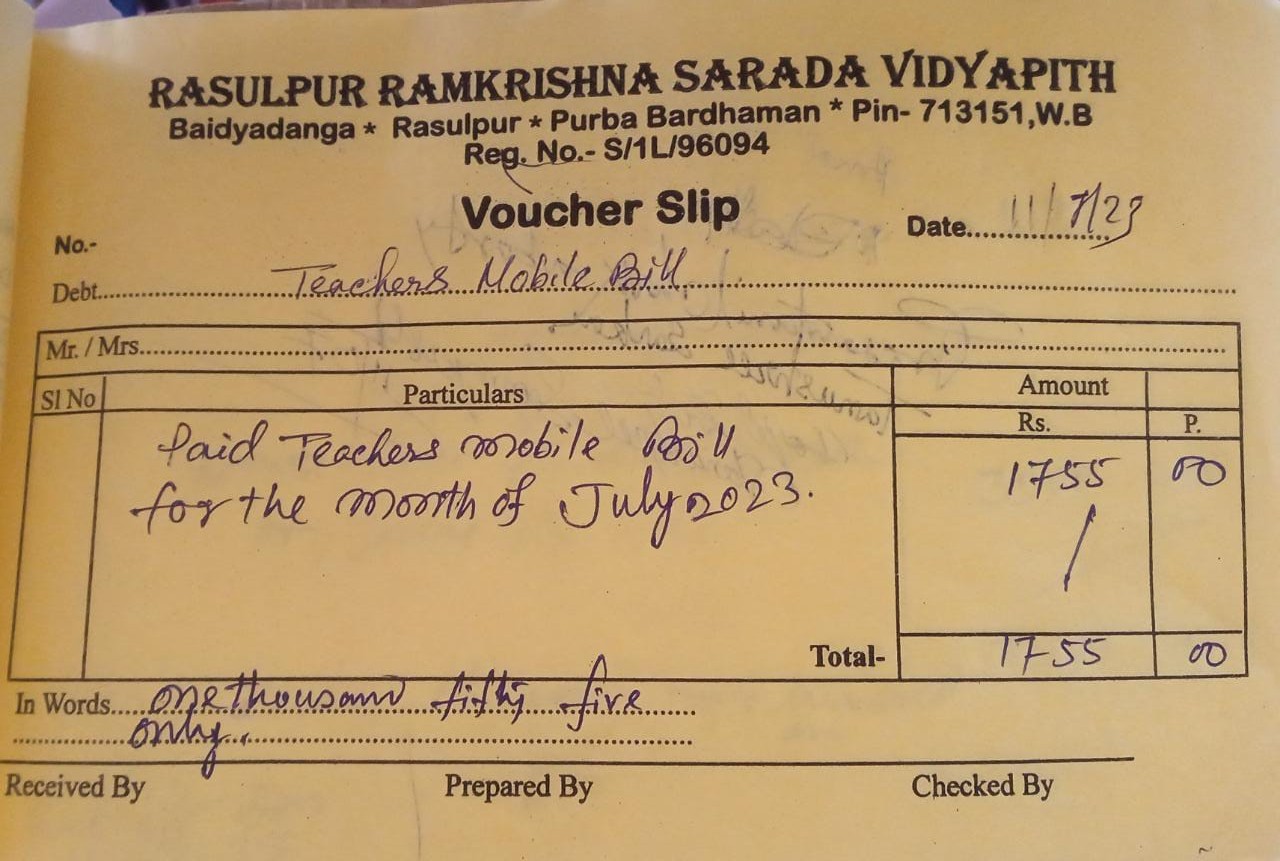 RASULPUR RAMKRISHNA SARADA VIDYAPITH
Baidyadanga * Rasulpur * Purba Bardhaman * Pin- 713151,W.B
Reg. No.- S/1L/96094
Voucher Slip
No.- Date 11/7/23
Debt Teachers Mobile Bill
Mr. / Mrs.
Sl No Particulars Amount
Rs. P.
Paid Teachers mobile Bill 1755 00
for the month of July 2023.
Total- 1755 00
In Words onethousand fifty five
only.
Received By Prepared By Checked By